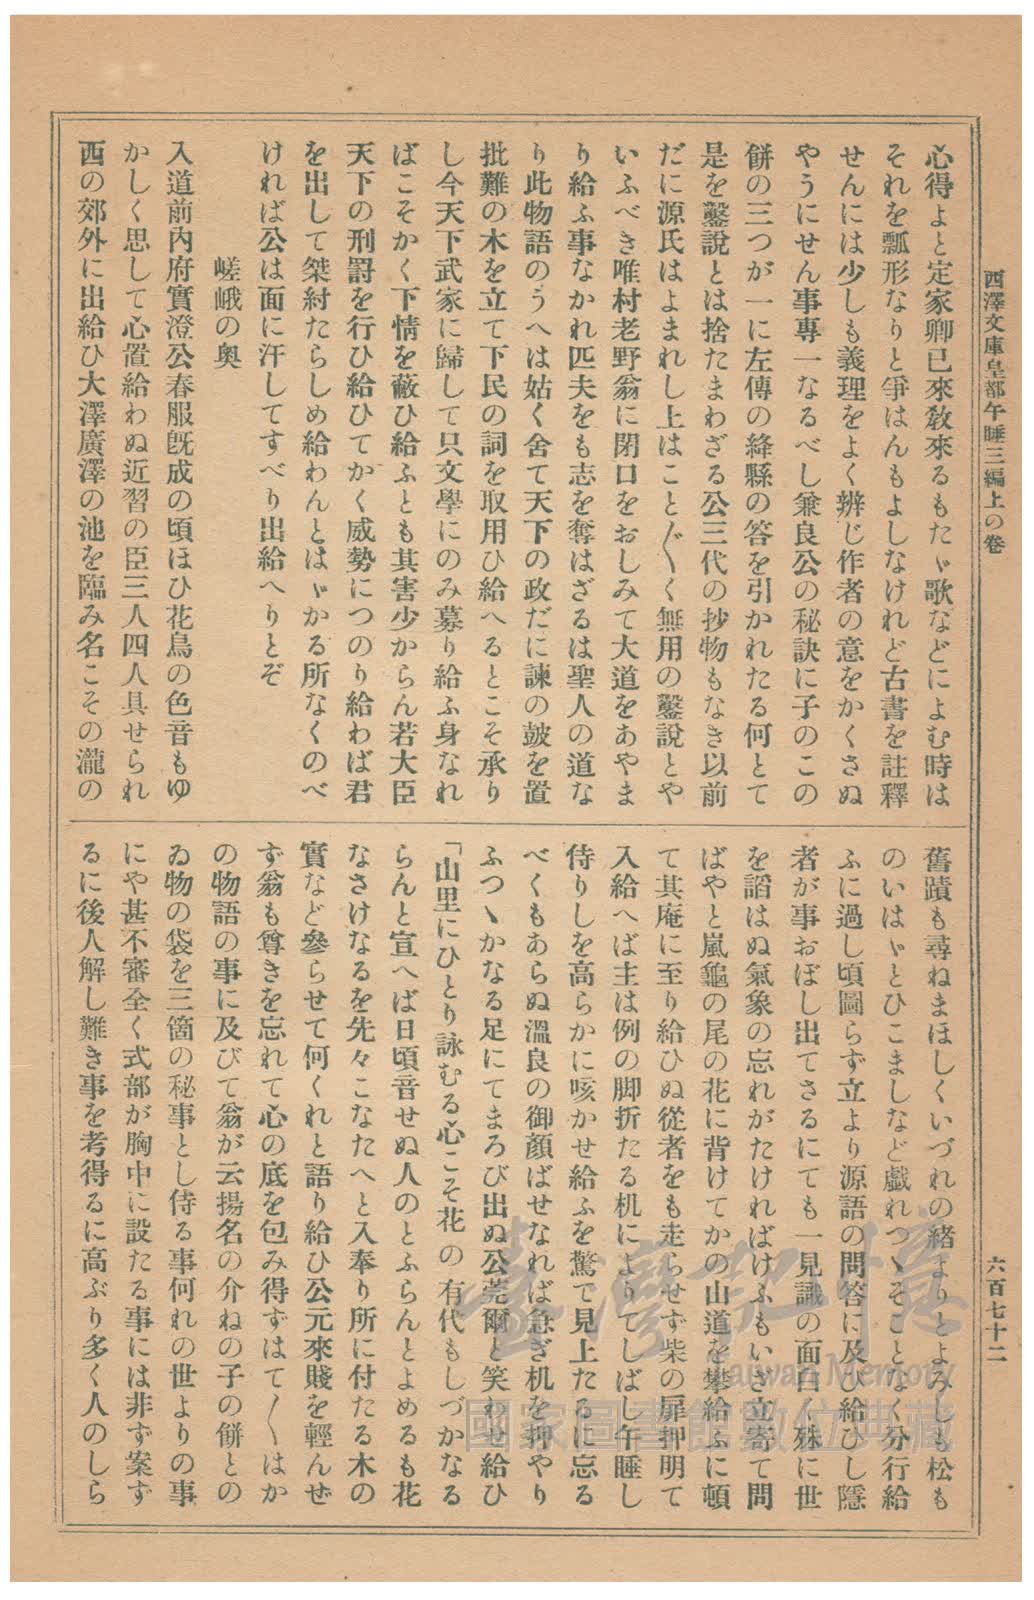 西澤文庫皇都午睡三編上の卷
六百七十二
心得よと定家卿已來敎來るもたゞ歌などによむ時は
それを瓢形なりと爭はんもよしなけれど古書を註釋
せんには少しも義理をよく辨じ作者の意をかくさぬ
やうにせん事專一なるべし兼良公の秘訣に子のこの
餅の三つが一に左傳の絳縣の答を引かれたる何とて
是を鑿說とは捨たまわざる公三代の抄物もなき以前
だに源氏はよまれし上はこと〴〵く無用の鑿說とや
いふべき唯村老野翁に閉口をおしみて大道をあやま
り給ふ事なかれ匹夫をも志を奪はざるは聖人の道な
り此物語のうへは姑く舍て天下の政だに諫の皷を置
批難の木を立て下民の詞を取用ひ給へるとこそ承り
し今天下武家に歸して只文學にのみ募り給ふ身なれ
ばこそかく下情を蔽ひ給ふとも其害少からん若大臣
天下の刑罸を行ひ給ひてかく威勢につのり給わば君
を出して桀紂たらしめ給わんとはゞかる所なくのべ
ければ公は面に汗してすべり出給へりとぞ
嵯峨の奧
入道前內府實澄公春服旣成の頃ほひ花鳥の色音もゆ
かしく思して心置給わぬ近習の臣三人四人具せられ
西の郊外に出給ひ大澤廣澤の池を臨み名こその瀧の
舊蹟も尋ねまほしくいづれの緖よりとよみしも松も
のいはゞとひこましなど戲れつゝそことなく分行給
ふに過し頃圖らず立より源語の問答に及び給ひし隱
者が事おぼし出てさるにても一見識の面白く殊に世
を謟はぬ氣象の忘れがたければけふもいざ立寄て問
ばやと嵐龜の尾の花に背けてかの山道を攀給ふに頓
て其庵に至り給ひぬ從者をも走らせず柴の扉押明て
入給へば主は例の脚折たる机によりてしばし午睡し
侍りしを高らかに咳かせ給ふを驚て見上たるに忘る
べくもあらぬ溫良の御顏ばせなれば急ぎ机を押やり
ふつゝかなる足にてまろび出ぬ公莞爾と笑わせ給ひ
「山里にひとり詠むる心こそ花の有代もしづかなる
らんと宣へば日頃音せぬ人のとふらんとよめるも花
なさけなるを先々こなたへと入奉り所に付たる木の
實など參らせて何くれと語り給ひ公元來賤を輕んぜ
ず翁も尊きを忘れて心の底を包み得ずはて〳〵はか
の物語の事に及びて翁が云揚名の介ねの子の餅との
ゐ物の袋を三箇の秘事とし侍る事何れの世よりの事
にや甚不審全く式部が胸中に設たる事には非ず案ず
るに後人解し難き事を考得るに高ぶり多く人のしら
臺灣記憶
Taiwan Memory
國家圖書館數位典藏